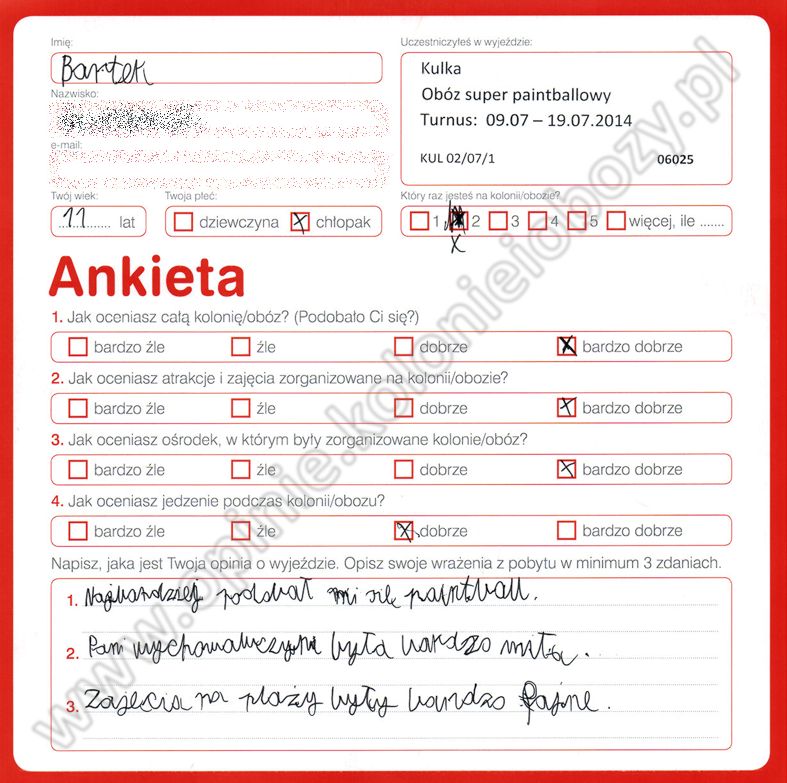 Imię:
Uczestniczyłeś w wyjeździe:
Bartek
Kulka
Nazwisko:
Obóz super paintballowy
Turnus: 09.07 – 19.07.2014
e-mail:
KUL 02/07/1 06025
Twój wiek: Twoja płeć: Który raz jesteś na kolonii/obozie?
11 lat dziewczyna chłopak 1 2 3 4 5 więcej, ile .......
Ankieta
1. Jak oceniasz całą kolonię/obóz? (Podobało Ci się?)
bardzo źle źle dobrze bardzo dobrze
2. Jak oceniasz atrakcje i zajęcia zorganizowane na kolonii/obozie?
bardzo źle źle dobrze bardzo dobrze
3. Jak oceniasz ośrodek, w którym były zorganizowane kolonie/obóz?
bardzo źle źle dobrze bardzo dobrze
4. Jak oceniasz jedzenie podczas kolonii/obozu?
bardzo źle źle dobrze bardzo dobrze
Napisz, jaka jest Twoja opinia o wyjeździe. Opisz swoje wrażenia z pobytu w minimum 3 zdaniach.
1. Najbardziej podobał mi się paintball.
2. Pani wychowawczyni była bardzo miła.
3. Zajęcia na plaży były bardzo fajne.
www.opinie.kolonieiobozy.pl